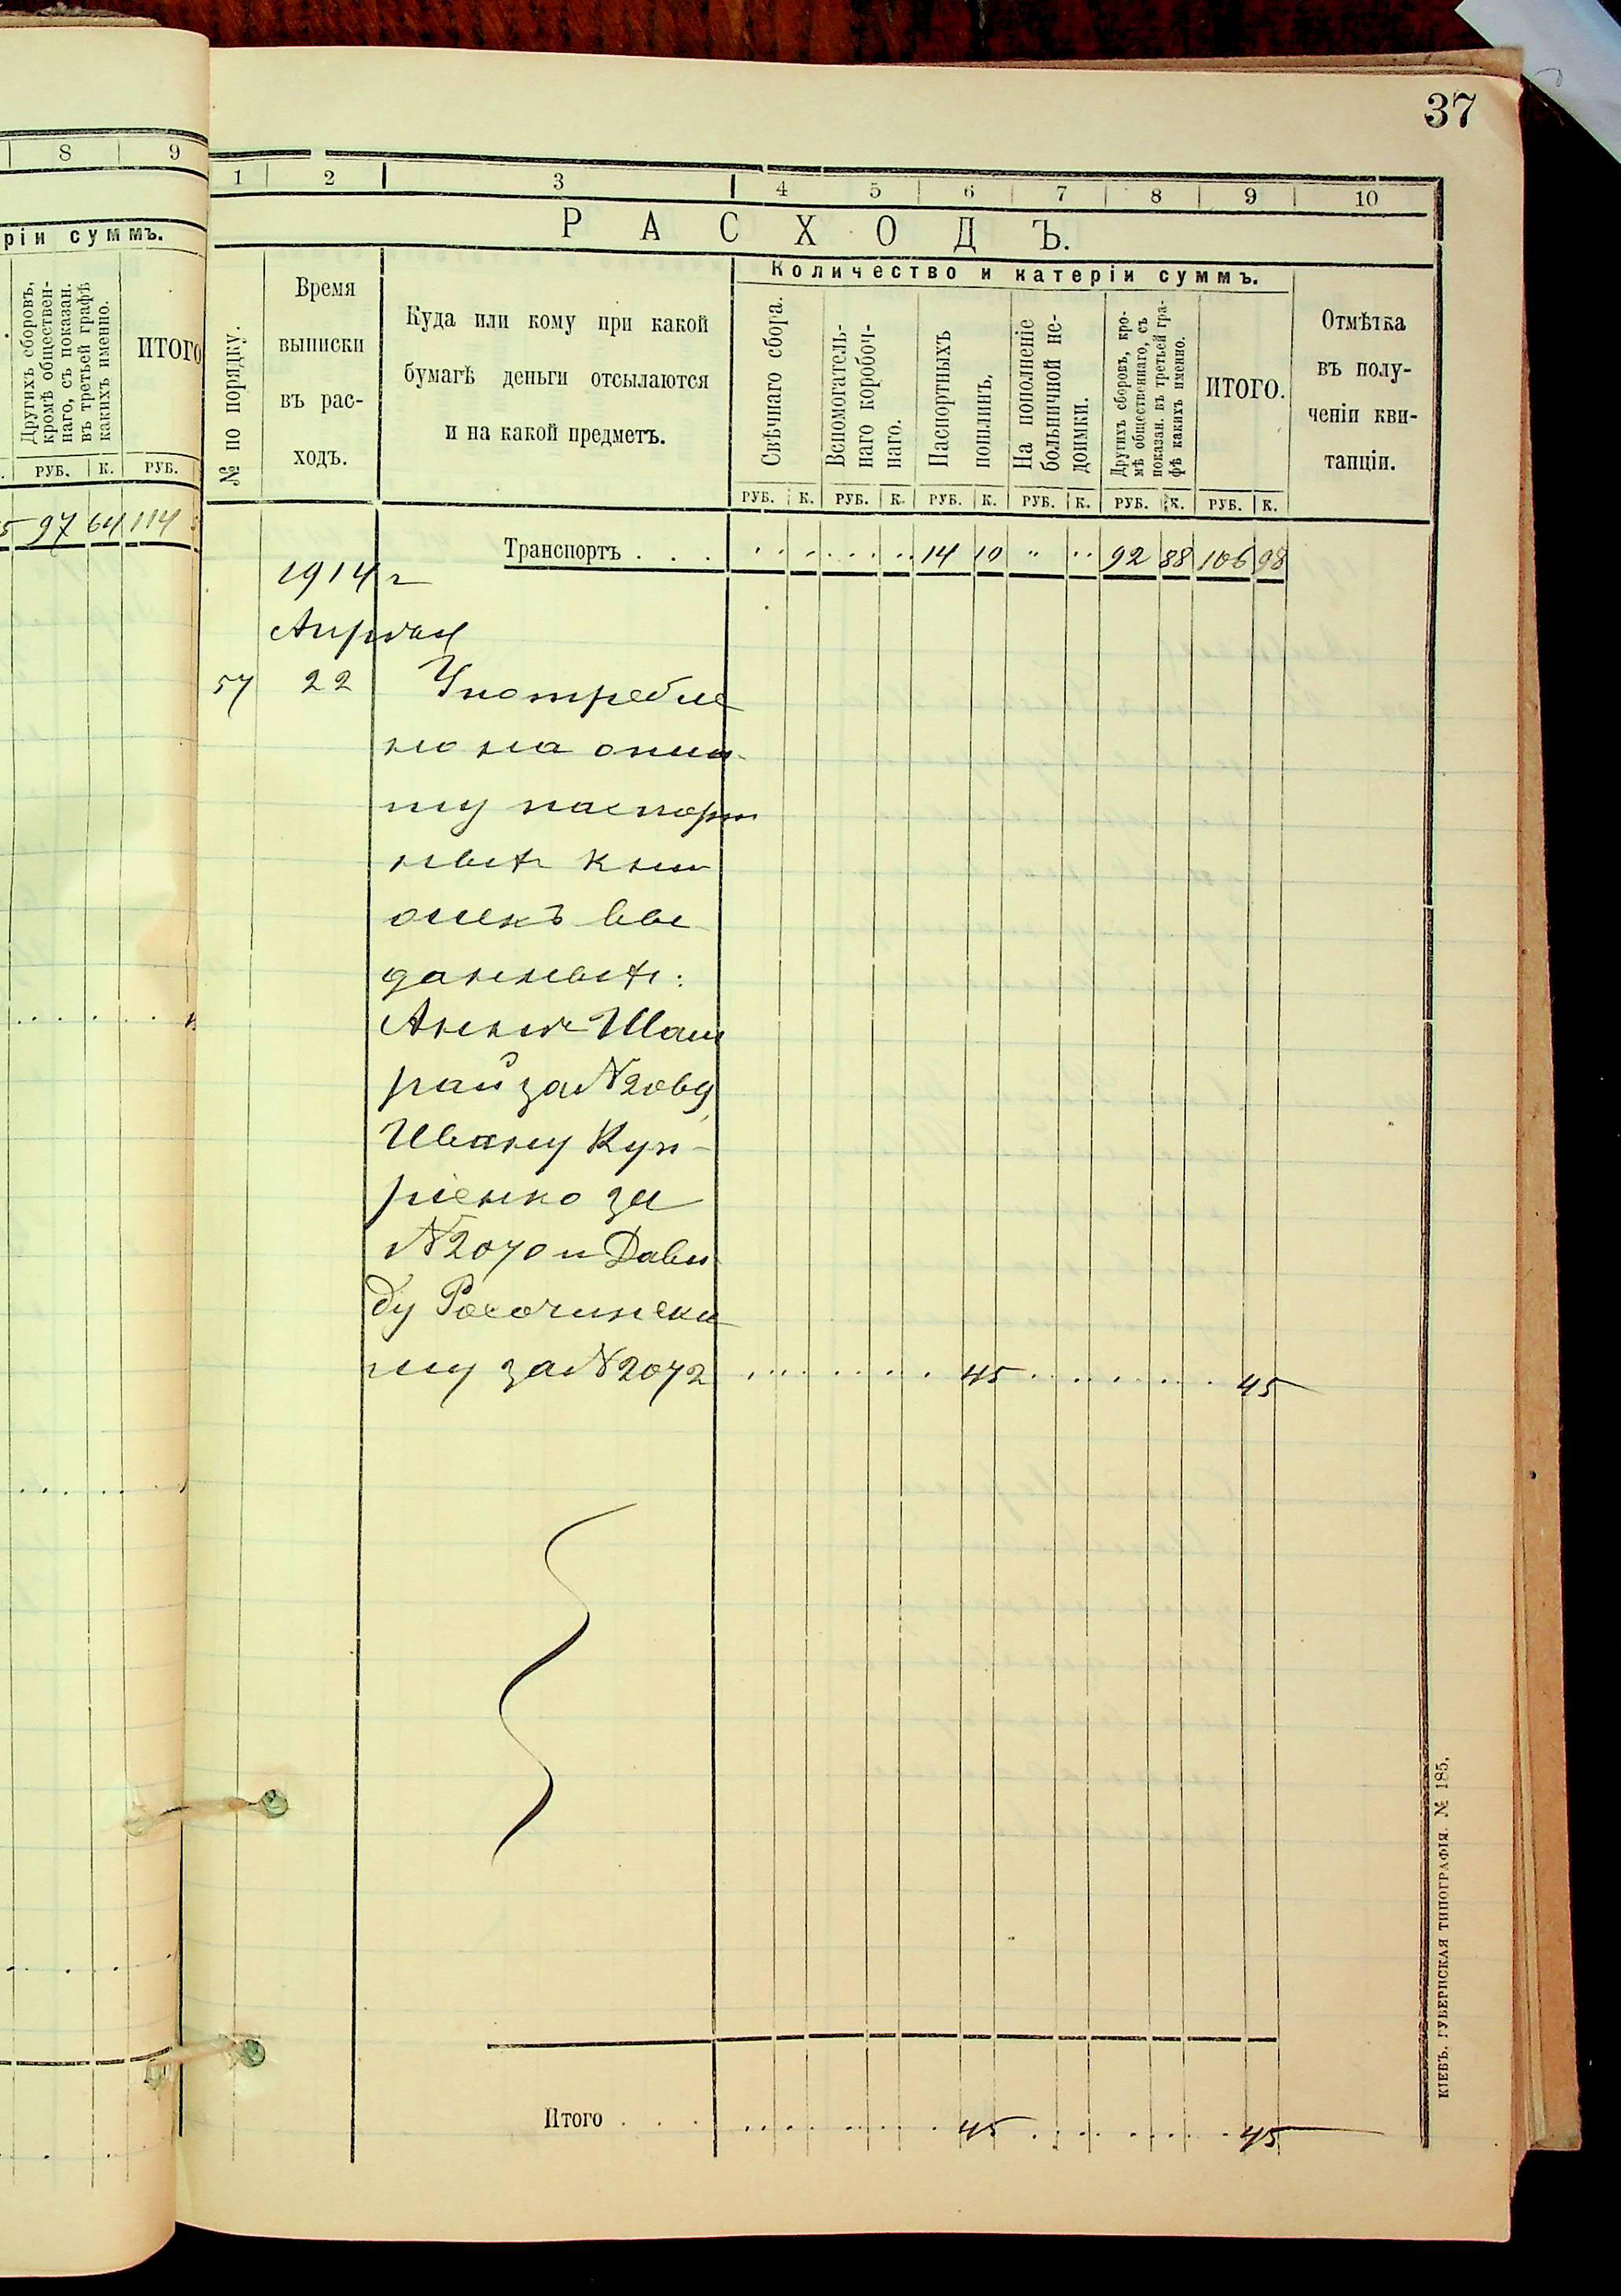 37
8 9
ріи суммъ.
Другихъ сборовъ,
кромѣ обществен-
наго, съ показан.
въ третьей графѣ
какихъ именно.
ИТОГО
РУБ. К. РУБ.
5 97 64 114
1 2 3 4 5 6 7 8 9 10
РАСХОДЪ.
№ по порядку.
Время
выписки
въ рас-
ходъ.
Куда или кому при какой
бумагѣ деньги отсылаются
и на какой предметъ.
Количество и катеріи суммъ.
Свѣчнаго сбора.
Вспомогатель-
наго коробоч-
наго.
Паспортныхъ
пошлинъ.
На пополненіе
больничной не-
доимки.
Другихъ сборовъ, кро-
мѣ общественнаго, съ
показан. въ третьей гра-
фѣ какихъ именно.
ИТОГО.
Отмѣтка
въ полу-
ченіи кви-
танціи.
РУБ. К. РУБ. К. РУБ. К. РУБ. К. РУБ. К. РУБ. К.
Транспортъ . . . 14 10 " 92 88 106 98
1914 г
Апрѣля
57 22 Употребле
но на опла-
ту паспорт
ныхъ кни
жекъ вы
данныхъ:
Аннѣ Шаш
рай за №2069,
Ивану Куп-
ріенко за
№2070 и Дави
ду Рассочинско
му за №2072 45 45
Итого . . . 45 45
КІЕВЪ, ГУБЕРНСКАЯ ТИПОГРАФІЯ. № 185.